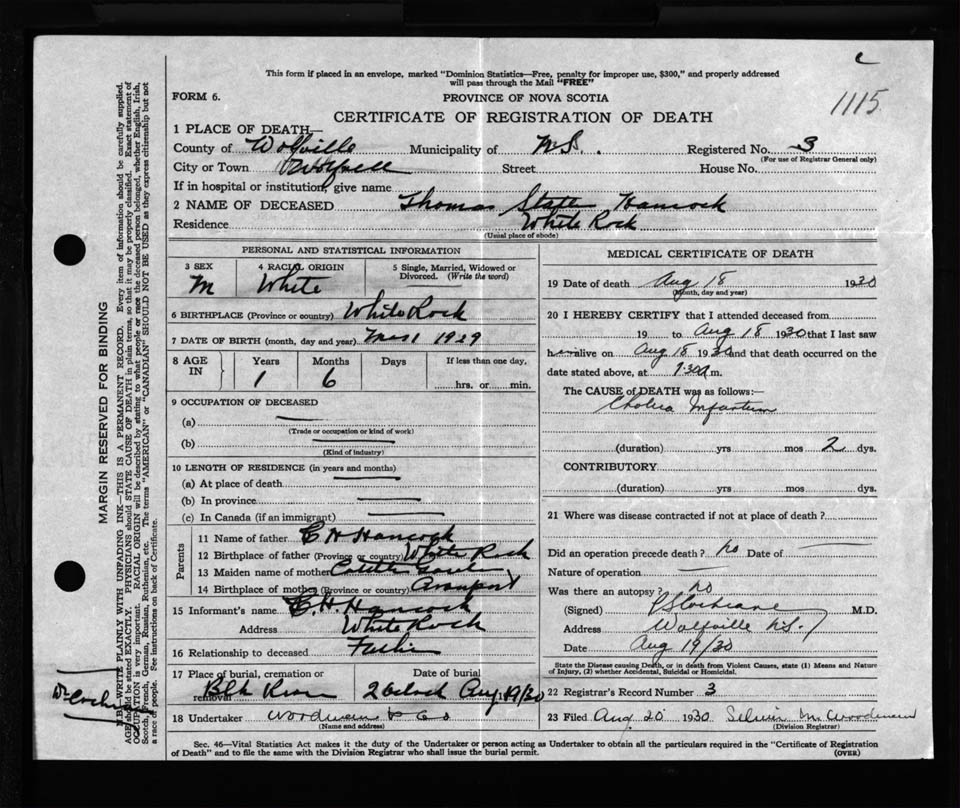 c
This form if placed in an envelope, marked "Dominion Statistics—Free, penalty for improper use, $300," and properly addressed
will pass through the Mail "FREE"
FORM 6.
PROVINCE OF NOVA SCOTIA
1115
CERTIFICATE OF REGISTRATION OF DEATH
1 PLACE OF DEATH—
County of Wolfville Municipality of N.S. Registered No. 3
(For use of Registrar General only)
City or Town Street House No.
If in hospital or institution, give name
2 NAME OF DECEASED Thomas Hancock
Residence White Rock
(Usual place of abode)
PERSONAL AND STATISTICAL INFORMATION
3 SEX M
4 RACIAL ORIGIN White
5 Single, Married, Widowed or Divorced. (Write the word)
6 BIRTHPLACE (Province or country) White Rock
7 DATE OF BIRTH (month, day and year) 1929
8 AGE IN Years 1 Months 6 Days If less than one day, hrs. or min.
9 OCCUPATION OF DECEASED
(a)
(Trade or occupation or kind of work)
(b)
(Kind of industry)
10 LENGTH OF RESIDENCE (in years and months)
(a) At place of death
(b) In province
(c) In Canada (if an immigrant)
Parents
11 Name of father C H Hancock
12 Birthplace of father (Province or country) White Rock
13 Maiden name of mother
14 Birthplace of mother (Province or country)
15 Informant's name C. H. Hancock
Address White Rock
16 Relationship to deceased Father
17 Place of burial, cremation or removal Date of burial
2 oclock Aug. 19/30
18 Undertaker Woodman & Co
(Name and address)
MEDICAL CERTIFICATE OF DEATH
19 Date of death Aug 18 1930
(Month, day and year)
20 I HEREBY CERTIFY that I attended deceased from
19 to Aug 18 1930 that I last saw
h alive on Aug 18 1930 and that death occurred on the
date stated above, at 1.30 a m.
The CAUSE of DEATH was as follows:—
Cholera Infantum
(duration) yrs mos 2 dys.
CONTRIBUTORY
(duration) yrs. mos dys.
21 Where was disease contracted if not at place of death?
Did an operation precede death? no Date of
Nature of operation
Was there an autopsy? no
(Signed) Cochrane M.D.
Address Wolfville N.S.
Date Aug 19/30
State the Disease causing Death, or in death from Violent Causes, state (1) Means and Nature
of Injury, (2) whether Accidental, Suicidal or Homicidal.
22 Registrar's Record Number 3
23 Filed Aug 20 1930 Woodman
(Division Registrar)
Sec. 46—Vital Statistics Act makes it the duty of the Undertaker or person acting as Undertaker to obtain all the particulars required in the "Certificate of Registration
of Death" and to file the same with the Division Registrar who shall issue the burial permit. (OVER)
MARGIN RESERVED FOR BINDING
N.B.—WRITE PLAINLY WITH UNFADING INK—THIS IS A PERMANENT RECORD. Every item of information should be carefully supplied.
AGE should be stated EXACTLY. PHYSICIANS should STATE CAUSE OF DEATH in plain terms, so that it may be properly classified. Exact statement of
OCCUPATION is very important. RACIAL ORIGIN will be described by stating to what people or race the deceased person belonged, whether English, Irish,
Scotch, French, German, Russian, Ruthenian, etc. The terms "AMERICAN" or "CANADIAN" SHOULD NOT BE USED as they express citizenship but not
a race of people. See instructions on back of Certificate.